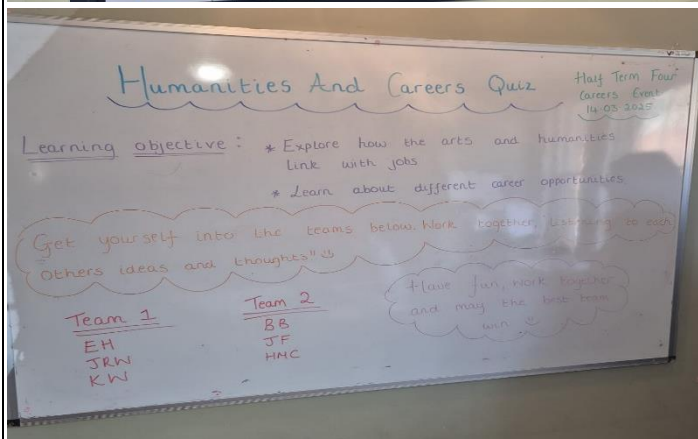 Humanities And Careers Quiz
Half Term Four
Careers Event
14.03.2025
Learning objective :
* Explore how the arts and humanities
link with jobs
* Learn about different career opportunities
Get yourself into the teams below. Work together, listening to each
others ideas and thoughts"
Have fun, work together
and may the best team
win
Team 1
EH
JRW
KW
Team 2
BB
JF
HMC